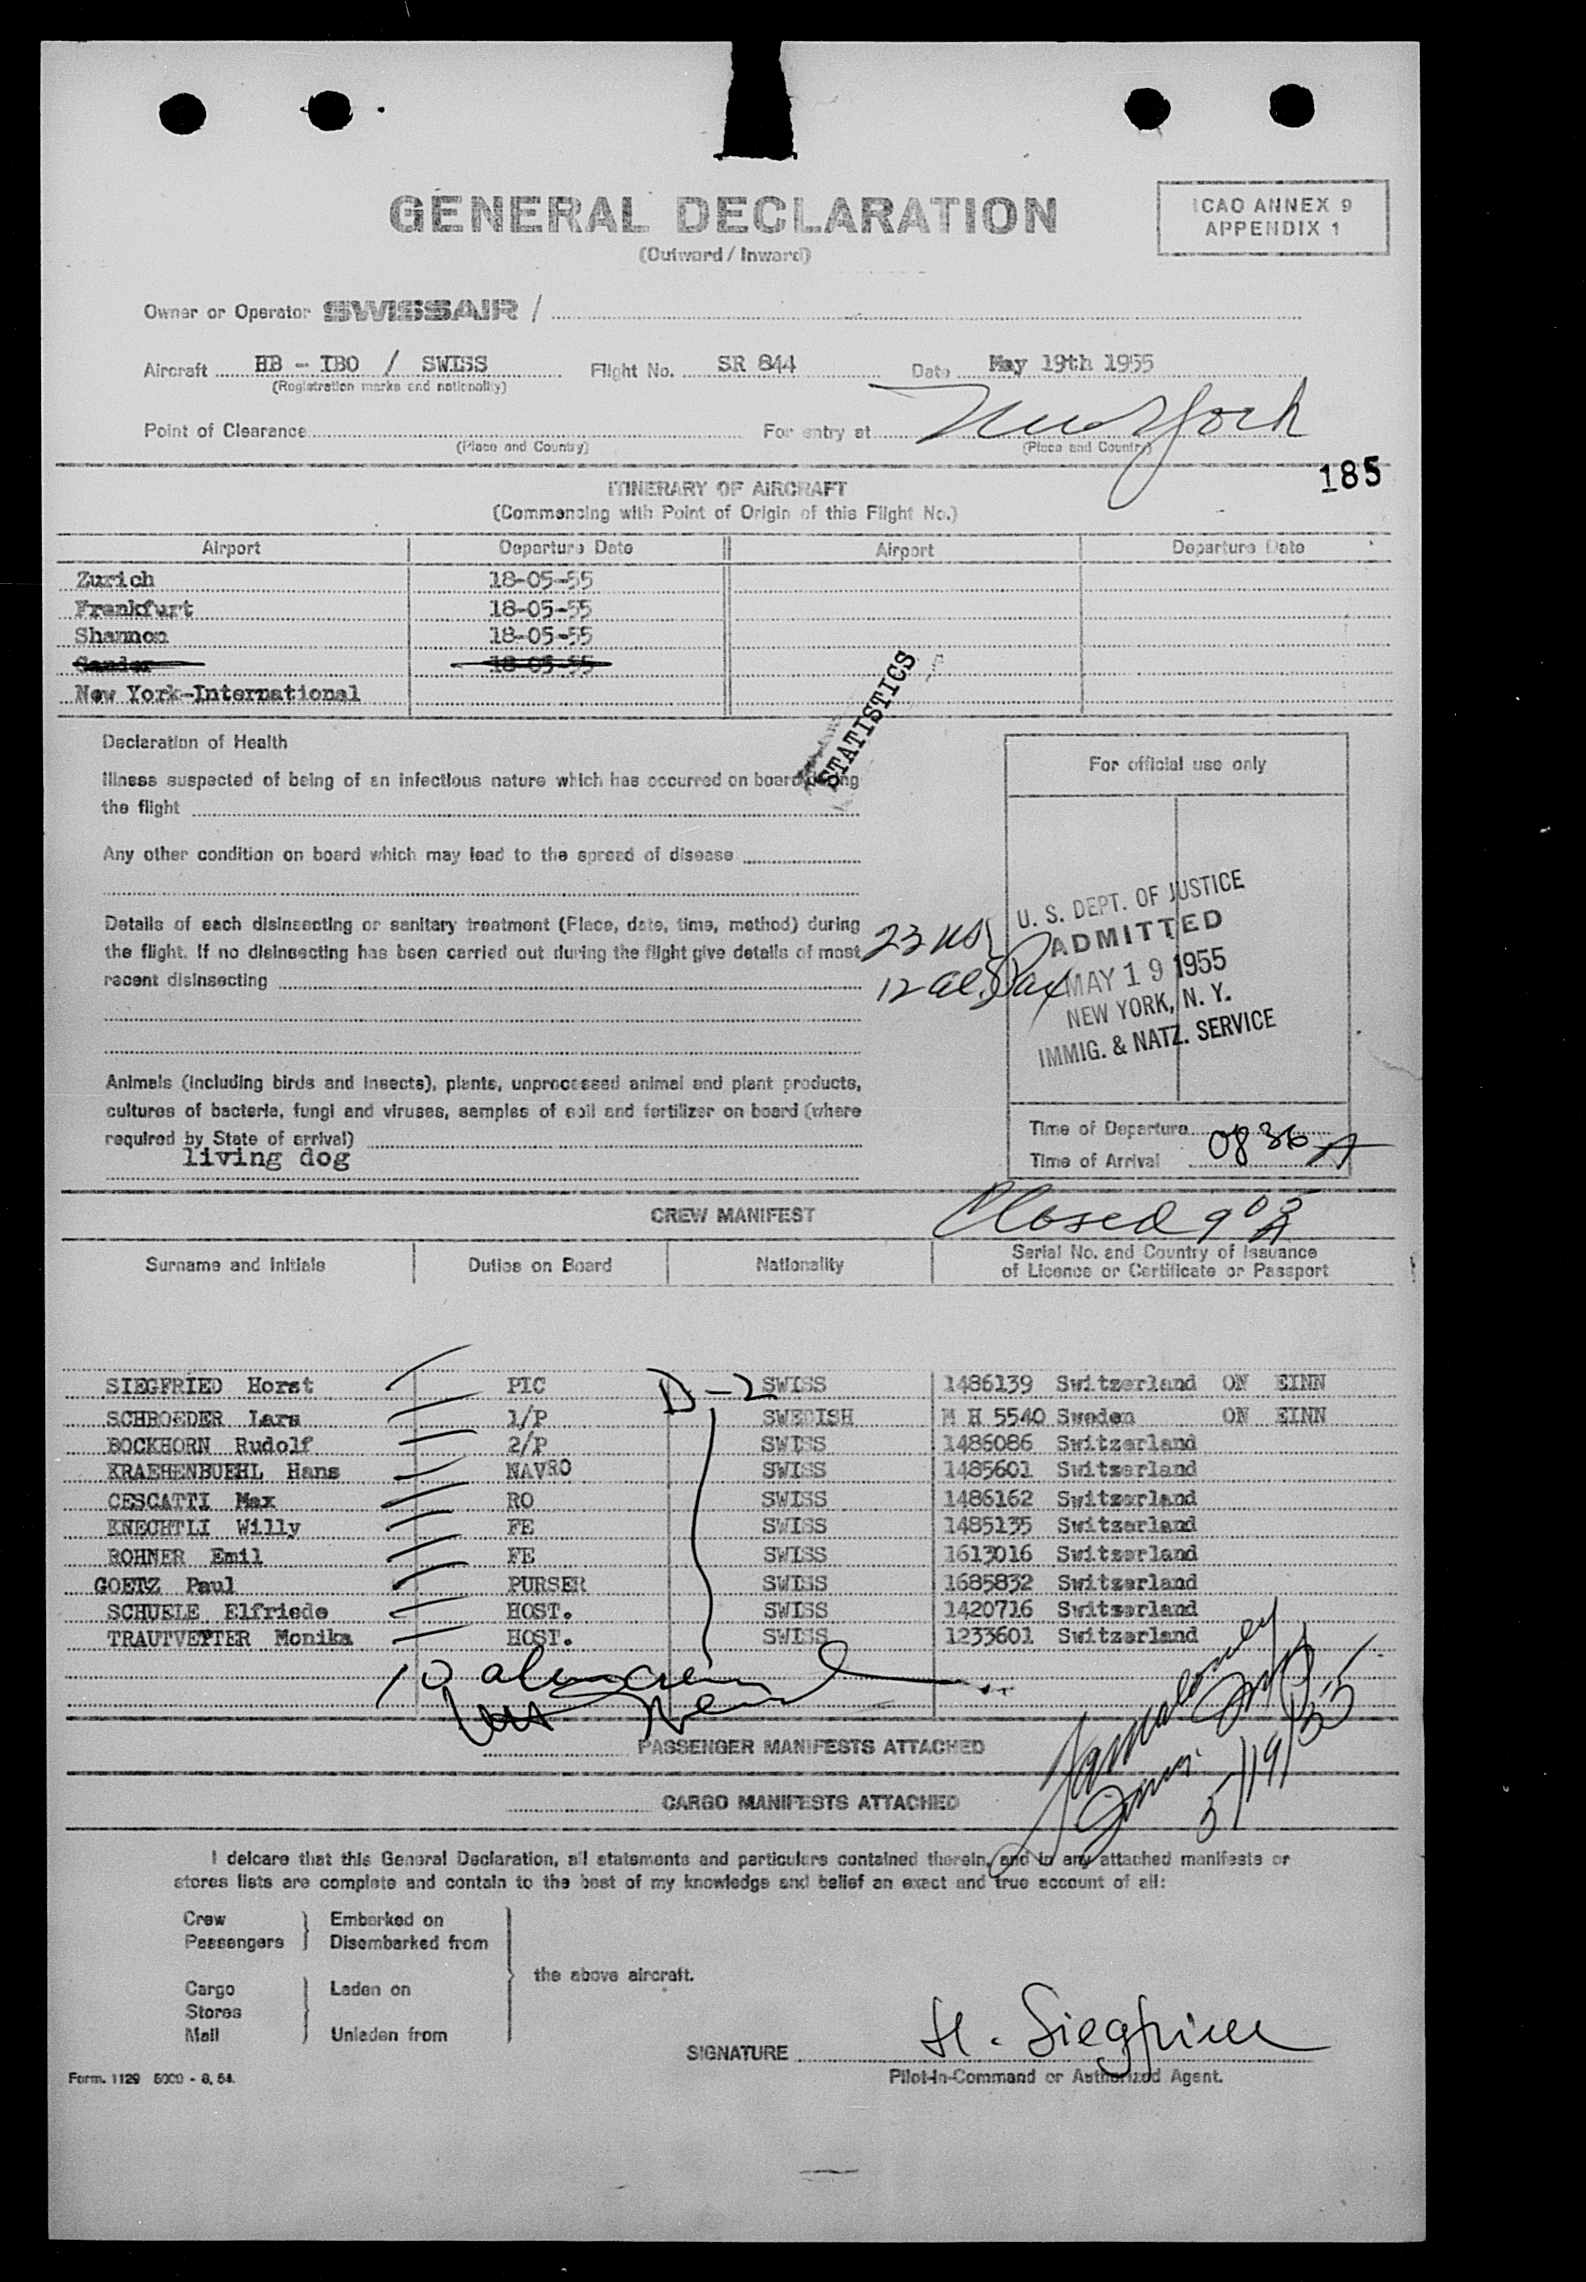 GENERAL DECLARATION
(Outward / Inward)
ICAO ANNEX 9
APPENDIX 1
Owner or Operator SWISSAIR /
Aircraft HB - IBO / SWISS Flight No. SR 844 Date May 19th 1955
(Registration marks and nationality)
Point of Clearance For entry at New York
(Place and Country) (Place and Country)
185
ITINERARY OF AIRCRAFT
(Commencing with Point of Origin of this Flight No.)
Airport Departure Date Airport Departure Date
Zurich 18-05-55
Frankfurt 18-05-55
Shannon 18-05-55
Gander 18-05-55
New York-International
STATISTICS
Declaration of Health
Illness suspected of being of an infectious nature which has occurred on board during
the flight
Any other condition on board which may lead to the spread of disease
Details of each disinsecting or sanitary treatment (Place, date, time, method) during
the flight. If no disinsecting has been carried out during the flight give details of most
recent disinsecting
Animals (including birds and insects), plants, unprocessed animal and plant products,
cultures of bacteria, fungi and viruses, samples of soil and fertilizer on board (where
required by State of arrival)
living dog
For official use only
23 US
12 al. Pax
U. S. DEPT. OF JUSTICE
ADMITTED
MAY 19 1955
NEW YORK, N. Y.
IMMIG. & NATZ. SERVICE
Time of Departure
Time of Arrival 0836 A
CREW MANIFEST
Closed 9 05 A
Surname and Initials Duties on Board Nationality Serial No. and Country of Issuance
of Licence or Certificate or Passport
SIEGFRIED Horst PIC D-2 SWISS 1486139 Switzerland ON EINN
SCHROEDER Lars 1/P SWEDISH M H 5540 Sweden ON EINN
BOCKHORN Rudolf 2/P SWISS 1486086 Switzerland
KRAEHENBUEHL Hans NAVRO SWISS 1485601 Switzerland
CESCATTI Max RO SWISS 1486162 Switzerland
KNECHTLI Willy FE SWISS 1485135 Switzerland
ROHNER Emil FE SWISS 1613016 Switzerland
GOETZ Paul PURSER SWISS 1685832 Switzerland
SCHUELE Elfriede HOST. SWISS 1420716 Switzerland
TRAUTVETTER Monika HOST. SWISS 1233601 Switzerland
10 alien crew
PASSENGER MANIFESTS ATTACHED
5/19/55
CARGO MANIFESTS ATTACHED
I delcare that this General Declaration, all statements and particulars contained therein, and in any attached manifests or
stores lists are complete and contain to the best of my knowledge and belief an exact and true account of all:
Crew Embarked on
Passengers Disembarked from
the above aircraft.
Cargo Laden on
Stores
Mail Unladen from
SIGNATURE H. Siegfried
Pilot-in-Command or Authorized Agent.
Form. 1129 5000 - 8. 54.